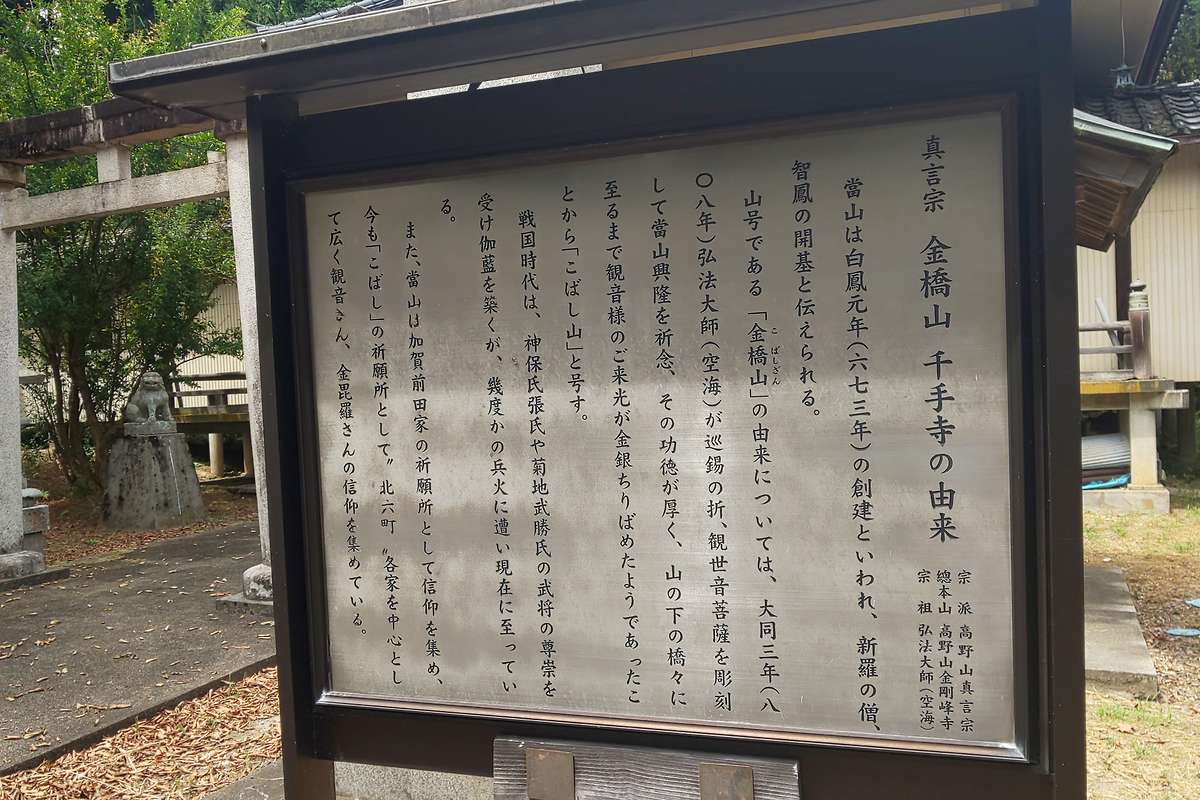 真言宗 金橋山 千手寺の由来
宗派 高野山真言宗
總本山 高野山金剛峰寺
宗祖 弘法大師(空海)
當山は白鳳元年(六七三年)の創建といわれ、新羅の僧、
智鳳の開基と伝えられる。
山号である「金橋山」の由来については、大同三年(八
こばしざん
〇八年)弘法大師(空海)が巡錫の折、観世音菩薩を彫刻
して當山興隆を祈念、その功徳が厚く、山の下の橋々に
至るまで観音様のご来光が金銀ちりばめたようであったこ
とから「こばし山」と号す。
戦国時代は、神保氏張氏や菊地武勝氏の武将の尊崇を
受け伽藍を築くが、幾度かの兵火に遭い現在に至ってい
る。
また、當山は加賀前田家の祈願所として信仰を集め、
今も「こばし」の祈願所として〃北六町〃各家を中心とし
て広く観音さん、金毘羅さんの信仰を集めている。